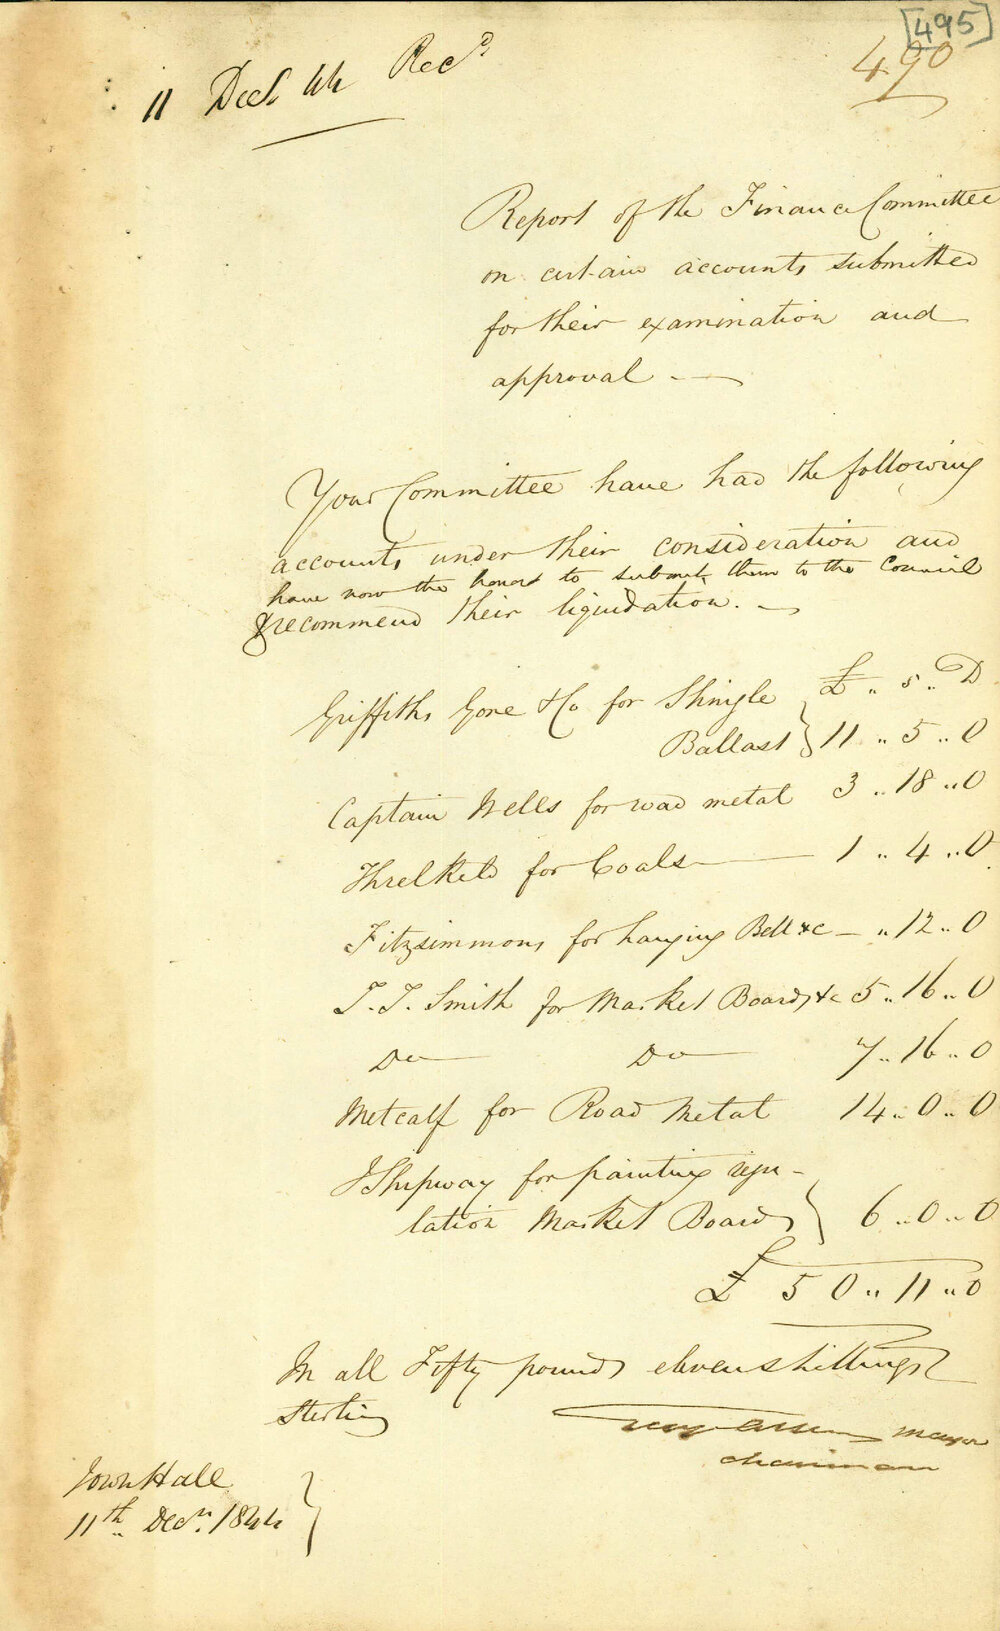 [495]
490
11 Decr. 44 Recd
Report of the Finance Committee
on certain accounts submitted
for their examination and
approval —
Your Committee have had the following
accounts under their consideration and
have now the honor to submit them to the Council
& recommend their liquidation. —
£ .. s .. D
Griffiths Gore & Co for Shingle
Ballast } 11 .. 5 .. 0
Captain Wells for road metal 3 .. 18 .. 0
Threlkeld for Coals — 1 .. 4 .. 0
Fitzsimmons for hanging Bell &c — .. 12 .. 0
T. J. Smith for Market Boards &c 5 .. 16 .. 0
Do — Do — 7 .. 16 .. 0
Metcalf for Road Metal 14 .. 0 .. 0
J Shipway for painting regu-
lation Market Boards } 6 .. 0 .. 0
£ 50 .. 11 .. 0
In all Fifty pounds eleven shillings
Sterling
Mayor
Chairman
Town Hall
11th Decr. 1844 }